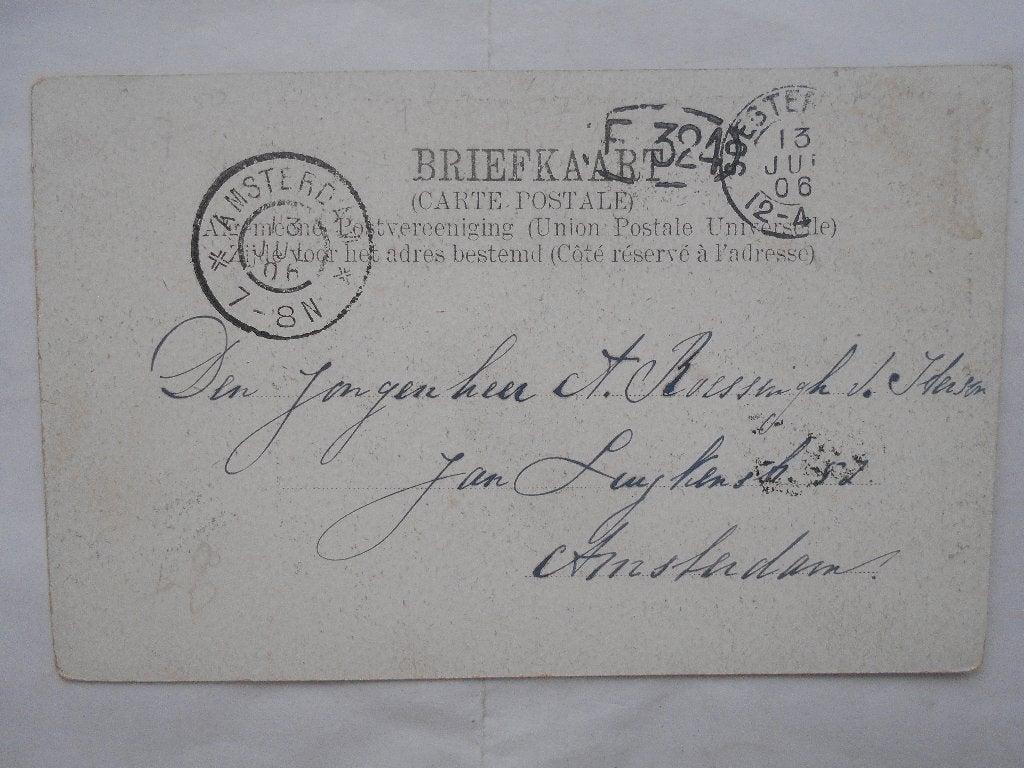 BRIEFKAART
(CARTE POSTALE)
Algemeene Postvereeniging (Union Postale Universelle)
Zijde voor het adres bestemd (Côté réservé à l'adresse)
AMSTERDAM
13
JUL
06
7-8N
SOESTER
13
JU
06
12-4
Den Jongenheer A. Roessingh
Jan Luykenstr. 52
Amsterdam.